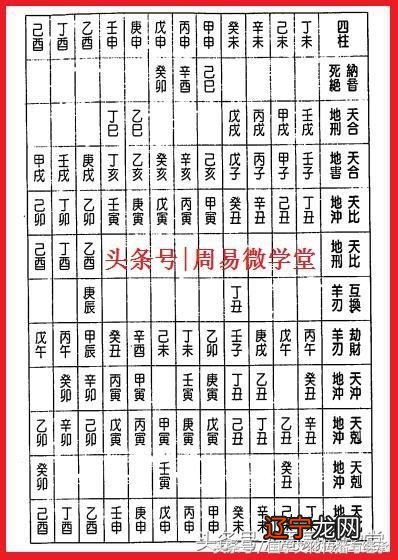 四柱 納音死絕 天合地刑 天合地害 天比地沖 天比地刑 互換羊刃 劫財羊刃 天沖地沖 天剋地沖 天剋地沖 天比地
丁未 壬戌 壬子 丁丑 丙午 癸丑 辛丑 丁未
己未 甲戌 甲子 己丑 戊午 乙丑 癸丑 己未
辛未 丙戌 丙子 辛丑 庚戌 乙丑 丁丑 辛未
癸未 戊戌 戊子 癸丑 丁丑 壬子 丁丑 己丑 癸未
甲申 己巳 己亥 甲寅 乙卯 庚寅 甲申
丙申 辛酉 辛亥 丙寅 丁未 壬寅 丙申
戊申 癸卯 癸亥 戊寅 己未 壬寅 戊申
庚申 乙巳 乙亥 庚寅 辛酉 甲寅 庚申
壬申 丁巳 丁亥 壬寅 癸丑 丙寅 戊寅 壬申
乙酉 庚戌 乙卯 乙酉 庚辰 甲辰 辛卯 己卯 乙酉
丁酉 壬戌 丁卯 丁酉 丙午 癸卯 辛卯 丁酉
己酉 甲戌 己卯 己酉 戊午 乙卯 癸卯 己酉
头条号|周易微学堂
辽宁龙网